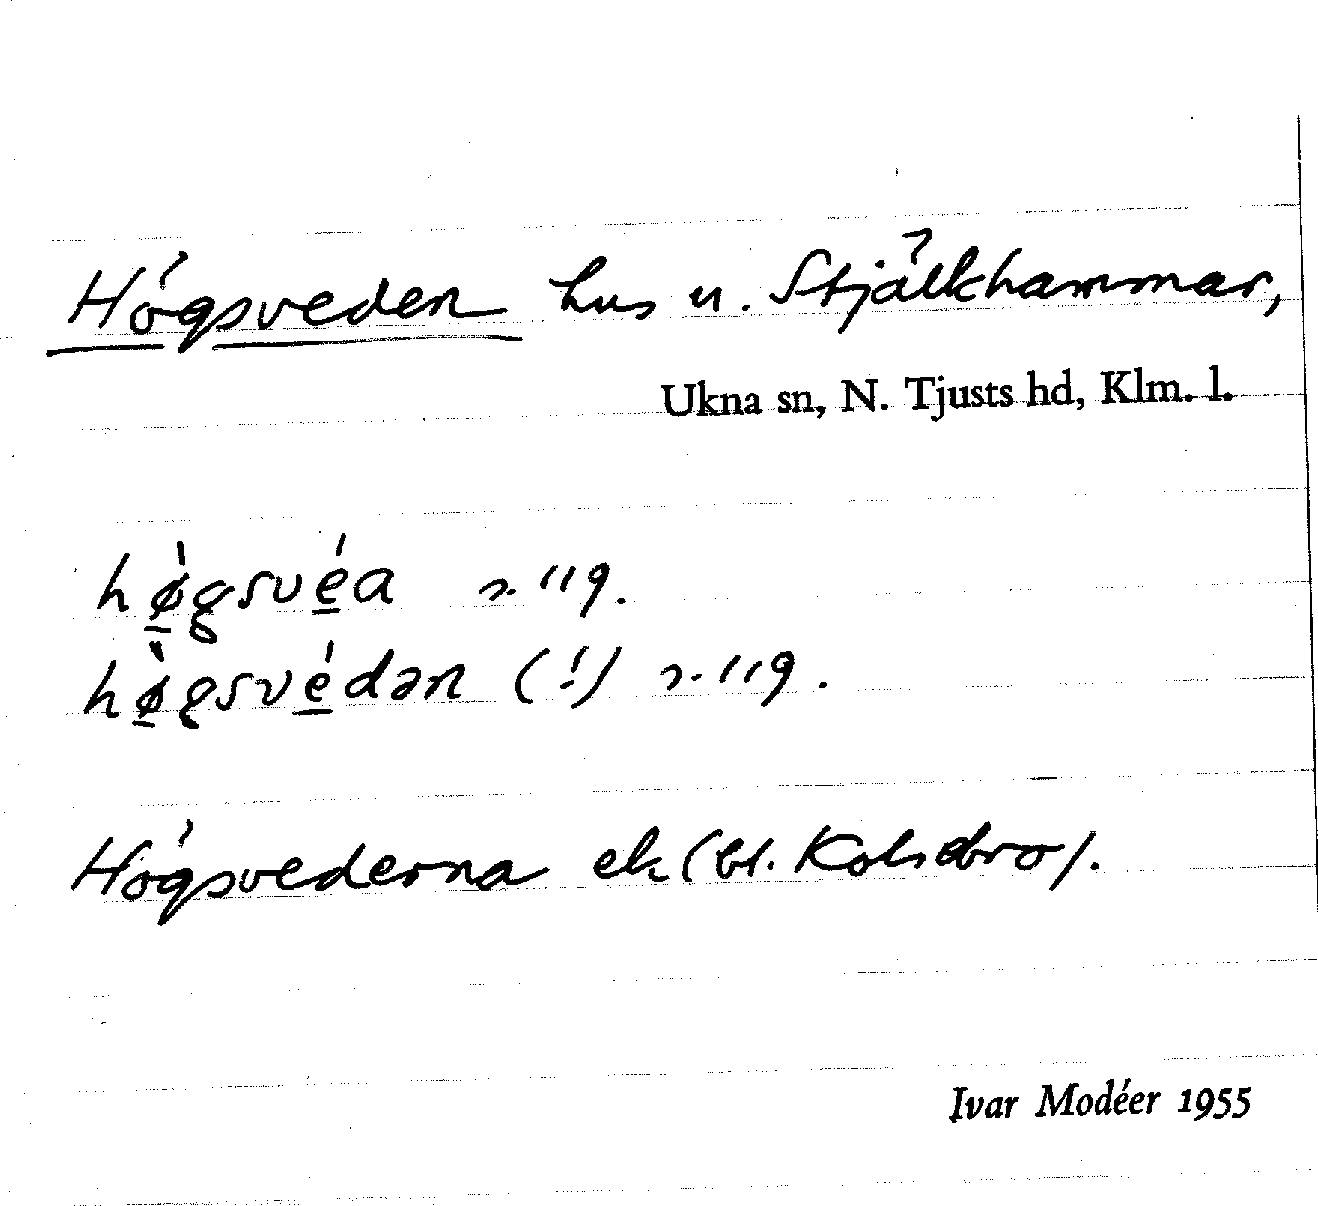 Högsveden hus u. Stjälkhammar,
Ukna sn, N. Tjusts hd, Klm. l.
hø̠̀gsvé̠a r. 119.
hø̠̀gsvé̠dən (!) r. 119.
Högsvederna ek (bl. Kolsebro).
Ivar Modéer 1955